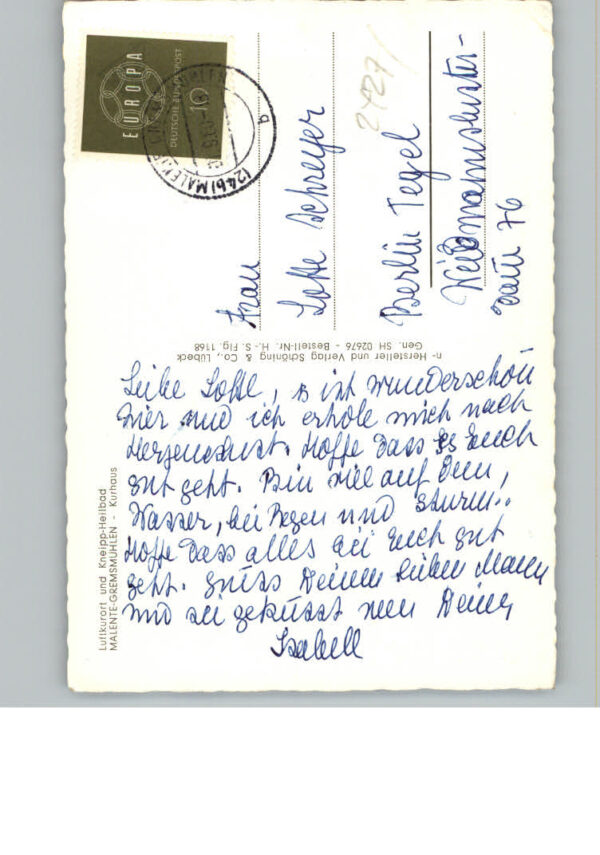 EUROPA
DEUTSCHE BUNDESPOST
10
(24b) MALENTE
b
2427/
Frau
Lotte Schreyer
Berlin Tegel
Weidmannsluster-
dam 76
n- Hersteller und Verlag Schöning & Co., Lübeck
Gen. SH 02676 - Bestell-Nr. H. S. Flg. 1168
Luftkurort und Kneipp-Heilbad
MALENTE-GREMSMÜHLEN - Kurhaus
Liebe Lotte, es ist wunderschön
hier und ich erhole mich nach
Herzenslust. Hoffe dass es Euch
gut geht. Bin viel auf dem
Wasser, bei Regen und Sturm..
Hoffe dass alles bei Euch gut
geht. Grüss Deinen lieben Mann
und sei geküsst von Deiner
Isabell